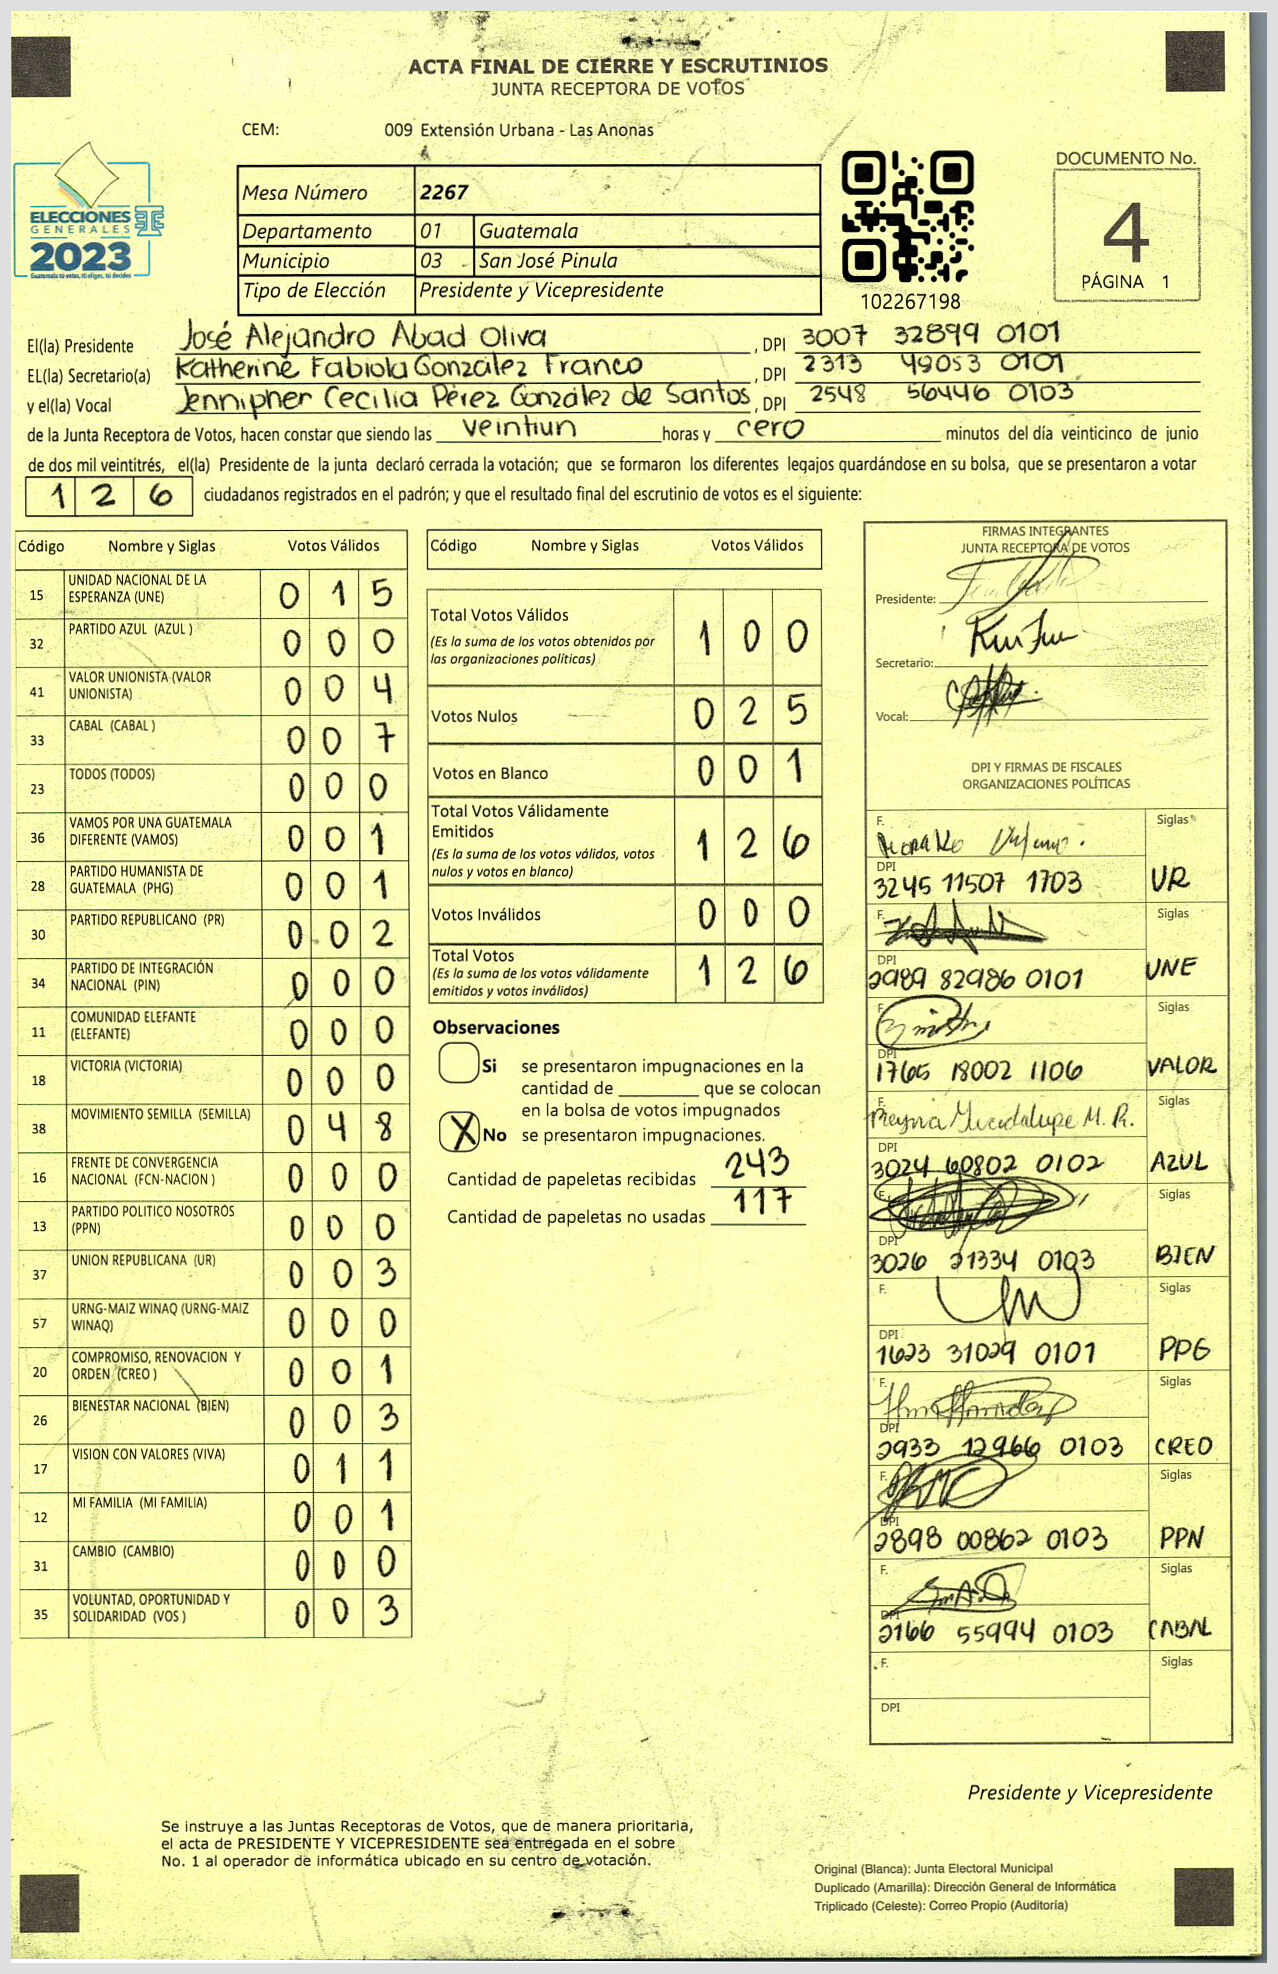 ACTA FINAL DE CIERRE Y ESCRUTINIOS
JUNTA RECEPTORA DE VOTOS
CEM: 009 Extensión Urbana - Las Anonas
ELECCIONES
GENERALES
2023
Guatemala tú votas, tú eliges, tú decides
Mesa Número 2267
Departamento 01 Guatemala
Municipio 03 San José Pinula
Tipo de Elección Presidente y Vicepresidente
102267198
DOCUMENTO No.
4
PÁGINA 1
El(la) Presidente José Alejandro Abad Oliva, DPI 3007 32899 0101
EL(la) Secretario(a) Katherine Fabiola González Franco, DPI 2313 49053 0101
y el(la) Vocal Jennipher Cecilia Pérez González de Santos, DPI 2548 56446 0103
de la Junta Receptora de Votos, hacen constar que siendo las veintiun horas y cero minutos del día veinticinco de junio
de dos mil veintitrés, el(la) Presidente de la junta declaró cerrada la votación; que se formaron los diferentes legajos guardándose en su bolsa, que se presentaron a votar
126 ciudadanos registrados en el padrón; y que el resultado final del escrutinio de votos es el siguiente:
Código Nombre y Siglas Votos Válidos
15 UNIDAD NACIONAL DE LA ESPERANZA (UNE) 015
32 PARTIDO AZUL (AZUL ) 000
41 VALOR UNIONISTA (VALOR UNIONISTA) 004
33 CABAL (CABAL ) 007
23 TODOS (TODOS) 000
36 VAMOS POR UNA GUATEMALA DIFERENTE (VAMOS) 001
28 PARTIDO HUMANISTA DE GUATEMALA (PHG) 001
30 PARTIDO REPUBLICANO (PR) 002
34 PARTIDO DE INTEGRACIÓN NACIONAL (PIN) 000
11 COMUNIDAD ELEFANTE (ELEFANTE) 000
18 VICTORIA (VICTORIA) 000
38 MOVIMIENTO SEMILLA (SEMILLA) 048
16 FRENTE DE CONVERGENCIA NACIONAL (FCN-NACION ) 000
13 PARTIDO POLITICO NOSOTROS (PPN) 000
37 UNION REPUBLICANA (UR) 003
57 URNG-MAIZ WINAQ (URNG-MAIZ WINAQ) 000
20 COMPROMISO, RENOVACION Y ORDEN (CREO ) 001
26 BIENESTAR NACIONAL (BIEN) 003
17 VISION CON VALORES (VIVA) 011
12 MI FAMILIA (MI FAMILIA) 001
31 CAMBIO (CAMBIO) 000
35 VOLUNTAD, OPORTUNIDAD Y SOLIDARIDAD (VOS ) 003
Código Nombre y Siglas Votos Válidos
Total Votos Válidos 100
(Es la suma de los votos obtenidos por
las organizaciones políticas)
Votos Nulos 025
Votos en Blanco 001
Total Votos Válidamente
Emitidos 126
(Es la suma de los votos válidos, votos
nulos y votos en blanco)
Votos Inválidos 000
Total Votos 126
(Es la suma de los votos válidamente
emitidos y votos inválidos)
Observaciones
Si se presentaron impugnaciones en la
cantidad de ________ que se colocan
en la bolsa de votos impugnados
X No se presentaron impugnaciones.
Cantidad de papeletas recibidas 243
Cantidad de papeletas no usadas 117
FIRMAS INTEGRANTES
JUNTA RECEPTORA DE VOTOS
Presidente:
Secretario:
Vocal:
DPI Y FIRMAS DE FISCALES
ORGANIZACIONES POLÍTICAS
F. Siglas
DPI 3245 11507 1703 UR
F. Siglas
DPI 2989 82986 0101 UNE
F. Siglas
DPI 1765 18002 1106 VALOR
F. Reyna Guadalupe M. R. Siglas
DPI 3024 60802 0102 AZUL
F. Siglas
DPI 3026 21334 0103 BIEN
F. Siglas
DPI 1623 31029 0101 PPG
F. Siglas
DPI 2933 12966 0103 CREO
F. Siglas
DPI 2898 00862 0103 PPN
F. Siglas
DPI 2166 55994 0103 CABAL
F. Siglas
DPI
Presidente y Vicepresidente
Se instruye a las Juntas Receptoras de Votos, que de manera prioritaria,
el acta de PRESIDENTE Y VICEPRESIDENTE sea entregada en el sobre
No. 1 al operador de informática ubicado en su centro de votación.
Original (Blanca): Junta Electoral Municipal
Duplicado (Amarilla): Dirección General de Informática
Triplicado (Celeste): Correo Propio (Auditoría)